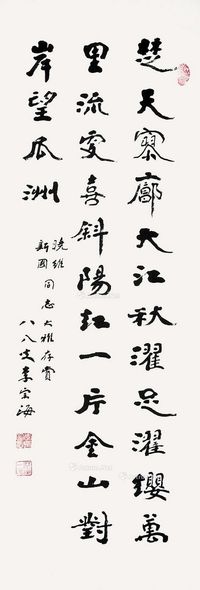 楚天寥廓大江秋濯足濯纓萬
里流更喜斜陽紅一片金山對
岸望瓜洲
新國同志大雅存賞
八八叟李宝海